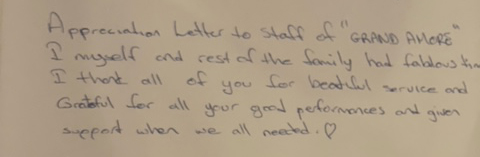 Appreciation Letter to staff of "GRAND AMORE"
I myself and rest of the family had fablous tim
I thank all of you for beatiful service and
Grateful for all your good performances and given
support when we all needed. ♡